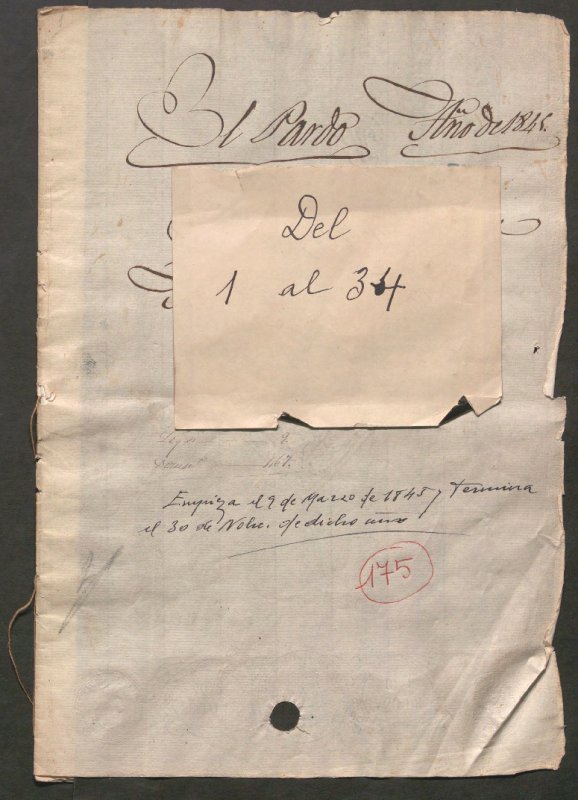 El Pardo Año de 1845.
Del
1 al 34
Legajo 2.
167.
Empieza el 9 de Marzo de 1845 y termina
el 30 de Nobre. de dicho año
175